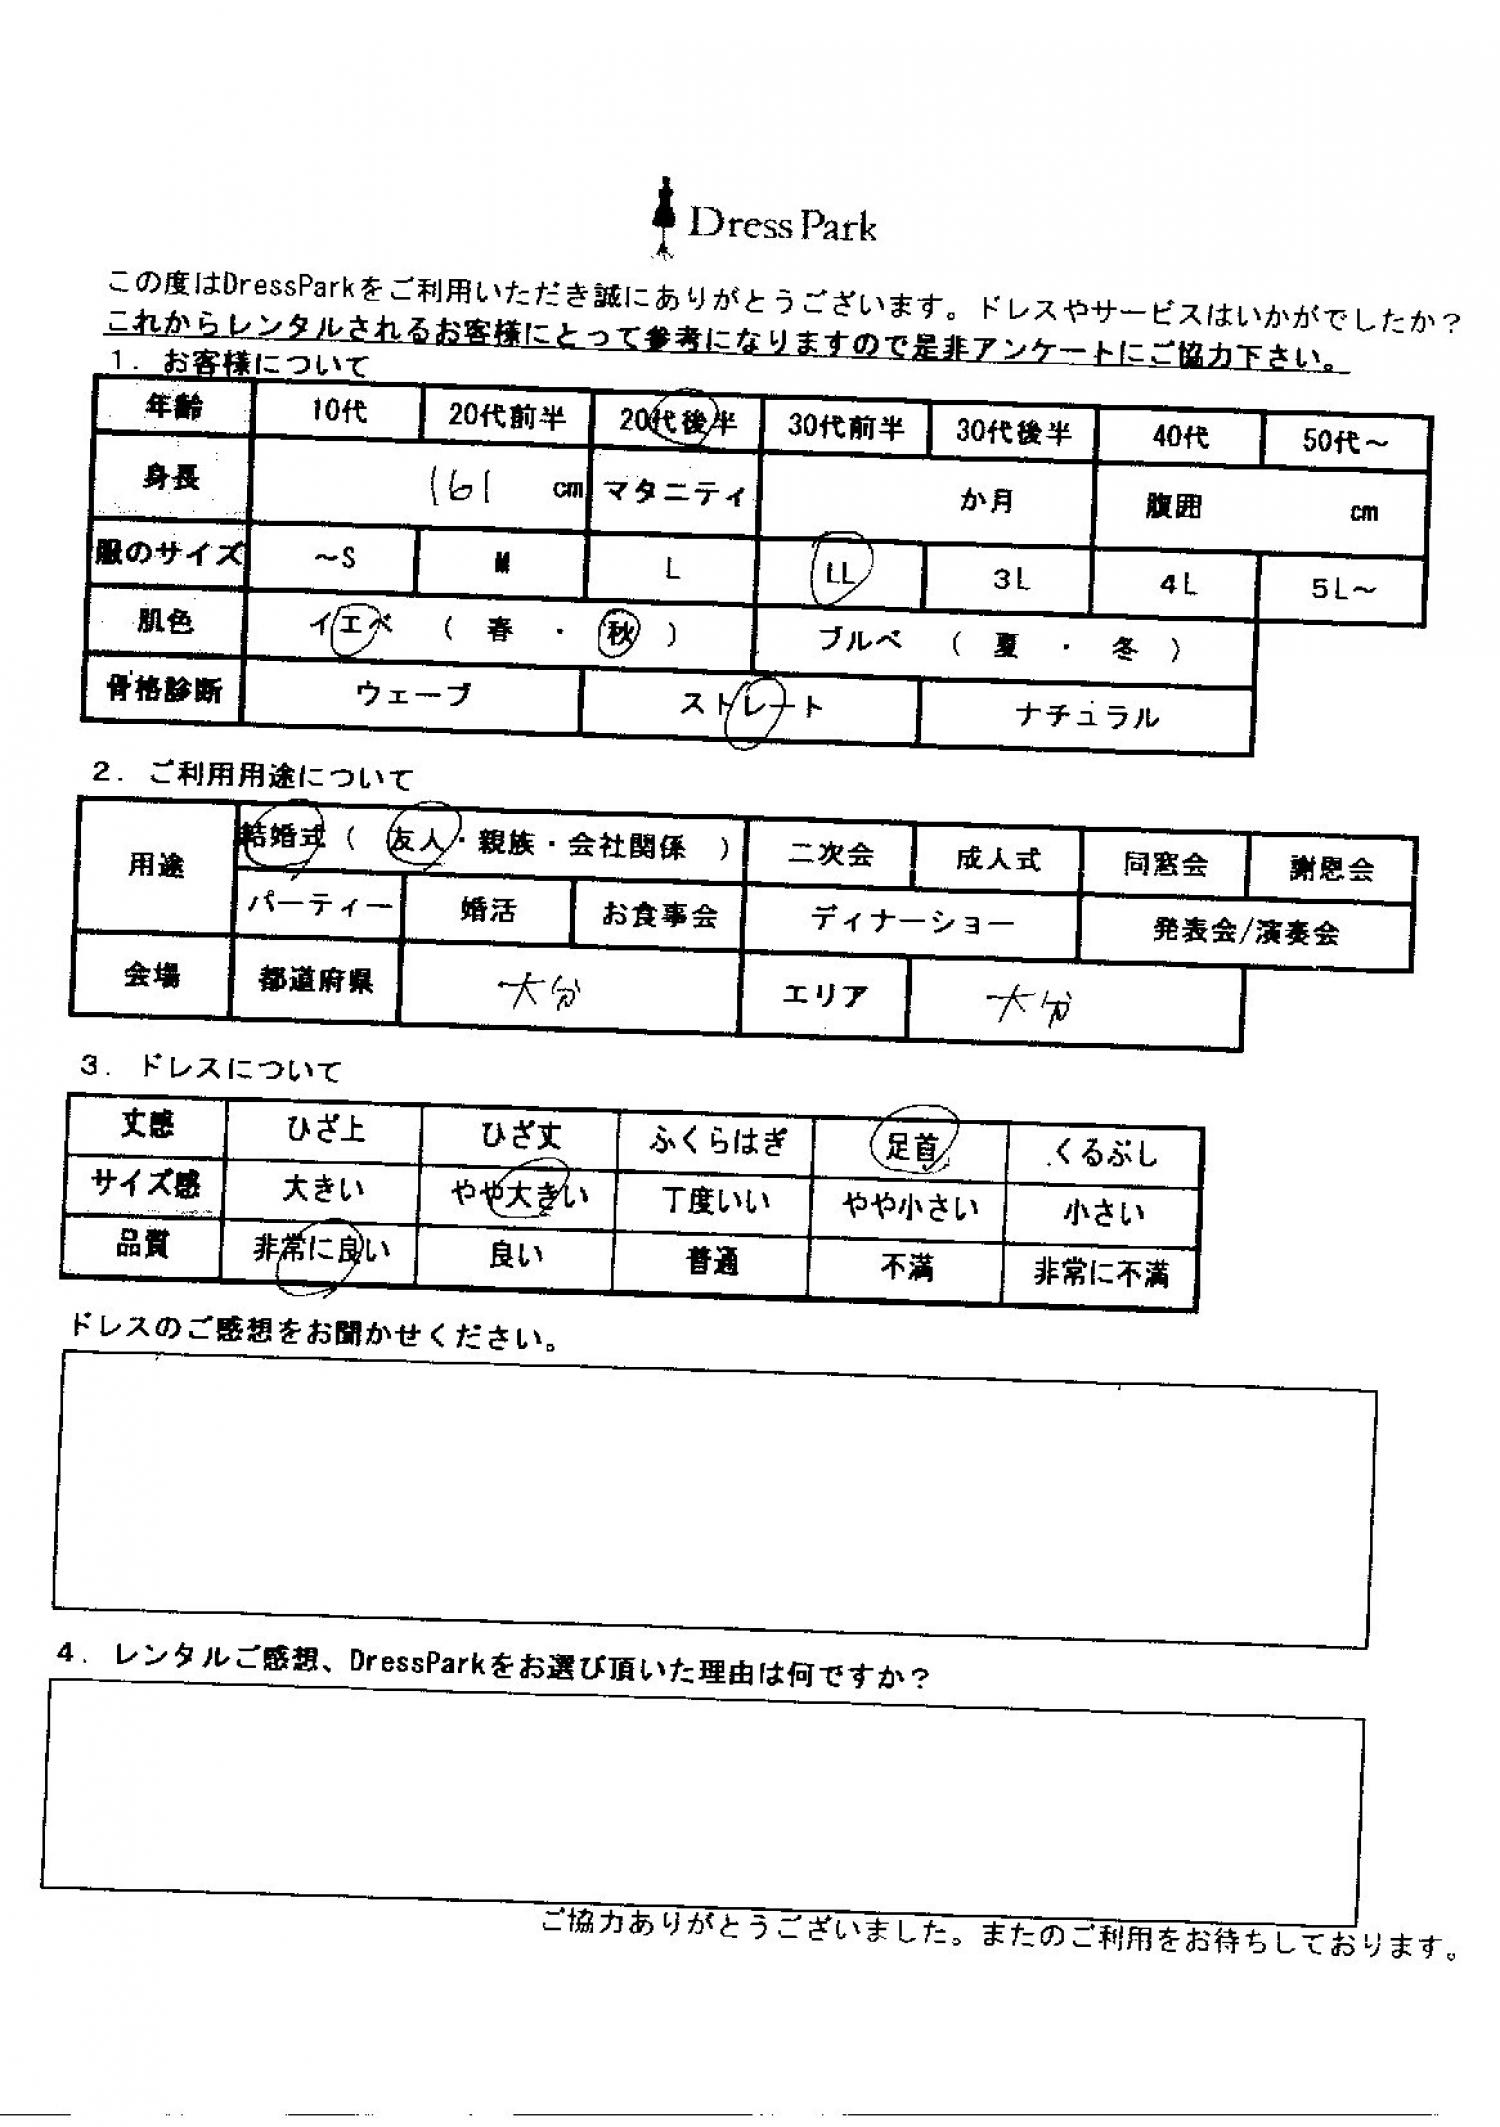 Dress Park
この度はDressParkをご利用いただき誠にありがとうございます。ドレスやサービスはいかがでしたか？
これからレンタルされるお客様にとって参考になりますので是非アンケートにご協力下さい。
1．お客様について
年齢 10代 20代前半 20代後半 30代前半 30代後半 40代 50代～
身長 161 cm マタニティ か月 腹囲 cm
服のサイズ ～S M L LL 3L 4L 5L～
肌色 イエベ （ 春 ・ 秋 ） ブルベ （ 夏 ・ 冬 ）
骨格診断 ウェーブ ストレート ナチュラル
2．ご利用用途について
用途 結婚式（ 友人・親族・会社関係 ） 二次会 成人式 同窓会 謝恩会
パーティー 婚活 お食事会 ディナーショー 発表会/演奏会
会場 都道府県 大分 エリア 大分
3．ドレスについて
丈感 ひざ上 ひざ丈 ふくらはぎ 足首 くるぶし
サイズ感 大きい やや大きい 丁度いい やや小さい 小さい
品質 非常に良い 良い 普通 不満 非常に不満
ドレスのご感想をお聞かせください。
4．レンタルご感想、DressParkをお選び頂いた理由は何ですか？
ご協力ありがとうございました。またのご利用をお待ちしております。